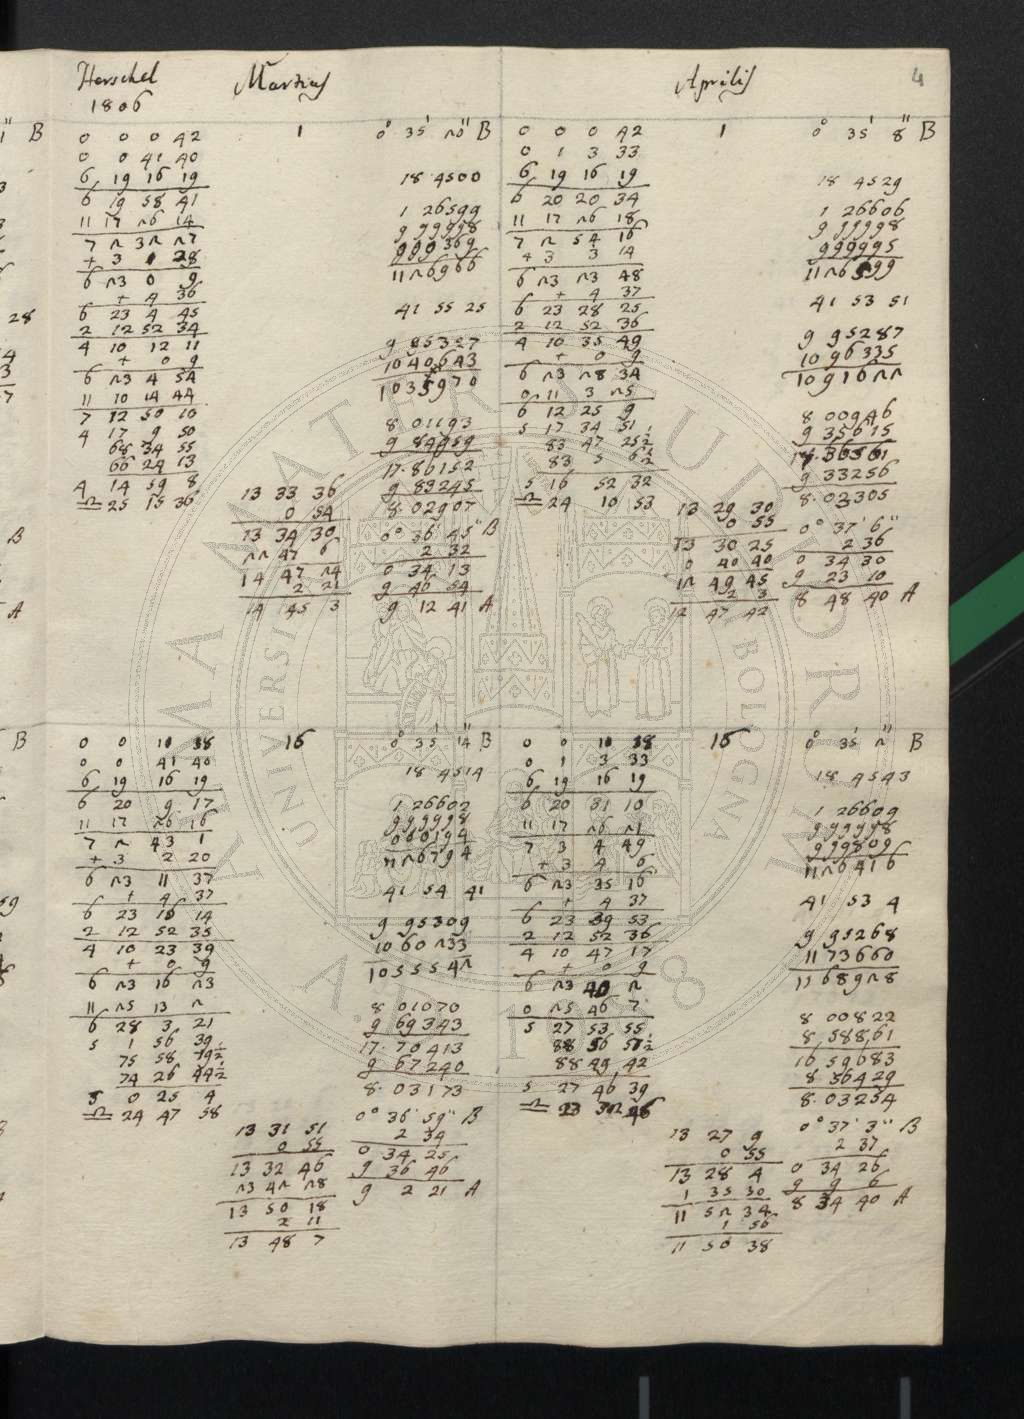 Herschel
1806
Martius
0 0 0 42
0 0 41 40
6 19 16 19
6 19 58 41
11 17 26 14
7 2 32 27
+ 3 0 28
6 23 0 9
+ 4 36
6 23 4 45
2 12 52 34
4 10 12 11
+ 0 9
6 23 4 54
11 10 14 44
7 12 50 10
4 17 9 50
68 34 55
66 24 13
4 14 59 8
♎ 25 15 36
1
13 33 36
0 54
13 34 30
22 47 6
14 47 24
2 21
14 45 3
0° 35' 20" B
18 4500
1 26599
9 99998
11 26966
41 55 25
9 95327
1035970
8 01193
9 84959
17.86152
9 83245
8.02907
0° 36' 45" B
2 32
0 34 13
9 46 54
9 12 41 A
Aprilis
4
0 0 0 42
0 1 3 33
6 19 16 19
6 20 20 34
11 17 26 18
7 2 54 16
+ 3 3 14
6 23 23 48
+ 4 37
6 23 28 25
2 12 52 36
4 10 35 49
+ 0 9
6 23 28 34
0 11 3 25
6 12 25 9
5 17 34 51
83 47 25½
83 5 6½
5 16 52 32
♎ 24 10 53
1
13 29 30
0 55
13 30 25
0 40 40
12 49 45
2 3
12 47 42
0° 35' 8" B
18 4529
1 26606
9 99998
999995
11 26599
41 53 51
9 95287
10 96335
10 91622
8 00946
9 35615
9 33256
8.02305
0° 37' 6"
2 36
0 34 30
9 23 10
8 48 40 A
0 0 10 38
0 0 41 40
6 19 16 19
6 20 9 17
11 17 26 16
7 2 43 1
+ 3 2 20
6 23 11 37
+ 4 37
6 23 16 14
2 12 52 35
4 10 23 39
+ 0 9
6 23 16 23
11 25 13 2
6 28 3 21
5 1 56 39
75 58 19½
74 26 44½
5 0 25 4
♎ 24 47 58
15
13 31 51
0 55
13 32 46
23 42 28
13 50 18
2 11
13 48 7
0° 35' 14" B
18 4514
1 26602
999998
060194
11 26794
41 54 41
9 95309
10 60233
1055542
8 01070
9 69343
17.70413
9 67240
8.03173
0° 36' 59" B
2 34
0 34 25
9 36 46
9 2 21 A
0 0 10 38
0 1 3 33
6 19 16 19
6 20 31 10
11 17 26 21
7 3 4 49
+ 3 4 6
6 23 35 16
+ 4 37
6 23 39 53
2 12 52 36
4 10 47 17
+ 0 9
6 23 40 2
0 25 46 7
5 27 53 55
88 56 57½
88 49 42
5 27 46 39
♎ 23 32 46
15
13 27 9
0 55
13 28 4
1 35 30
11 52 34
1 56
11 50 38
0° 35' 2" B
18 4543
1 26609
999998
999809
11 26416
41 53 4
9 95268
11 73660
11 68928
8 00822
8 58861
16 59683
8 56429
8.03254
0° 37' 3" B
2 37
0 34 26
9 9 6
8 34 40 A
ALMA MATER STUDIORUM
UNIVERSITÀ DI BOLOGNA
1088